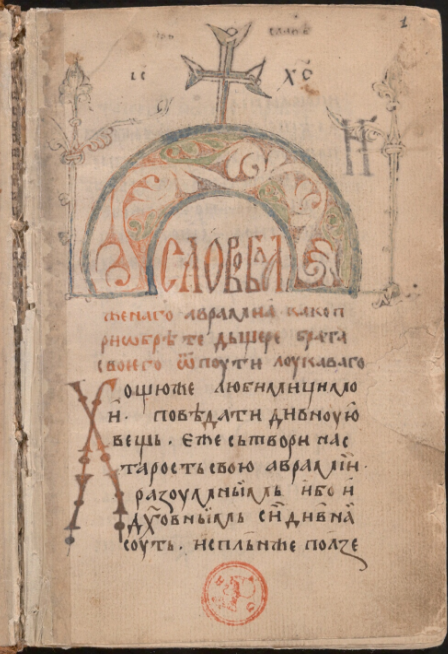 1
ІС ХС
СЛОВО БЛ
женаго авраамиа како п
риѡбрѣте дьщере брата
своего ѿ поути лоукаваго
Хощюже любимици мо
и. повѣдати дивноую
вещь. еже сьтвори нас
тарость свою авраамїи.
разоумныимь ибо и
дх҃овныимь сїи дивна
соуть. испльнже ползе